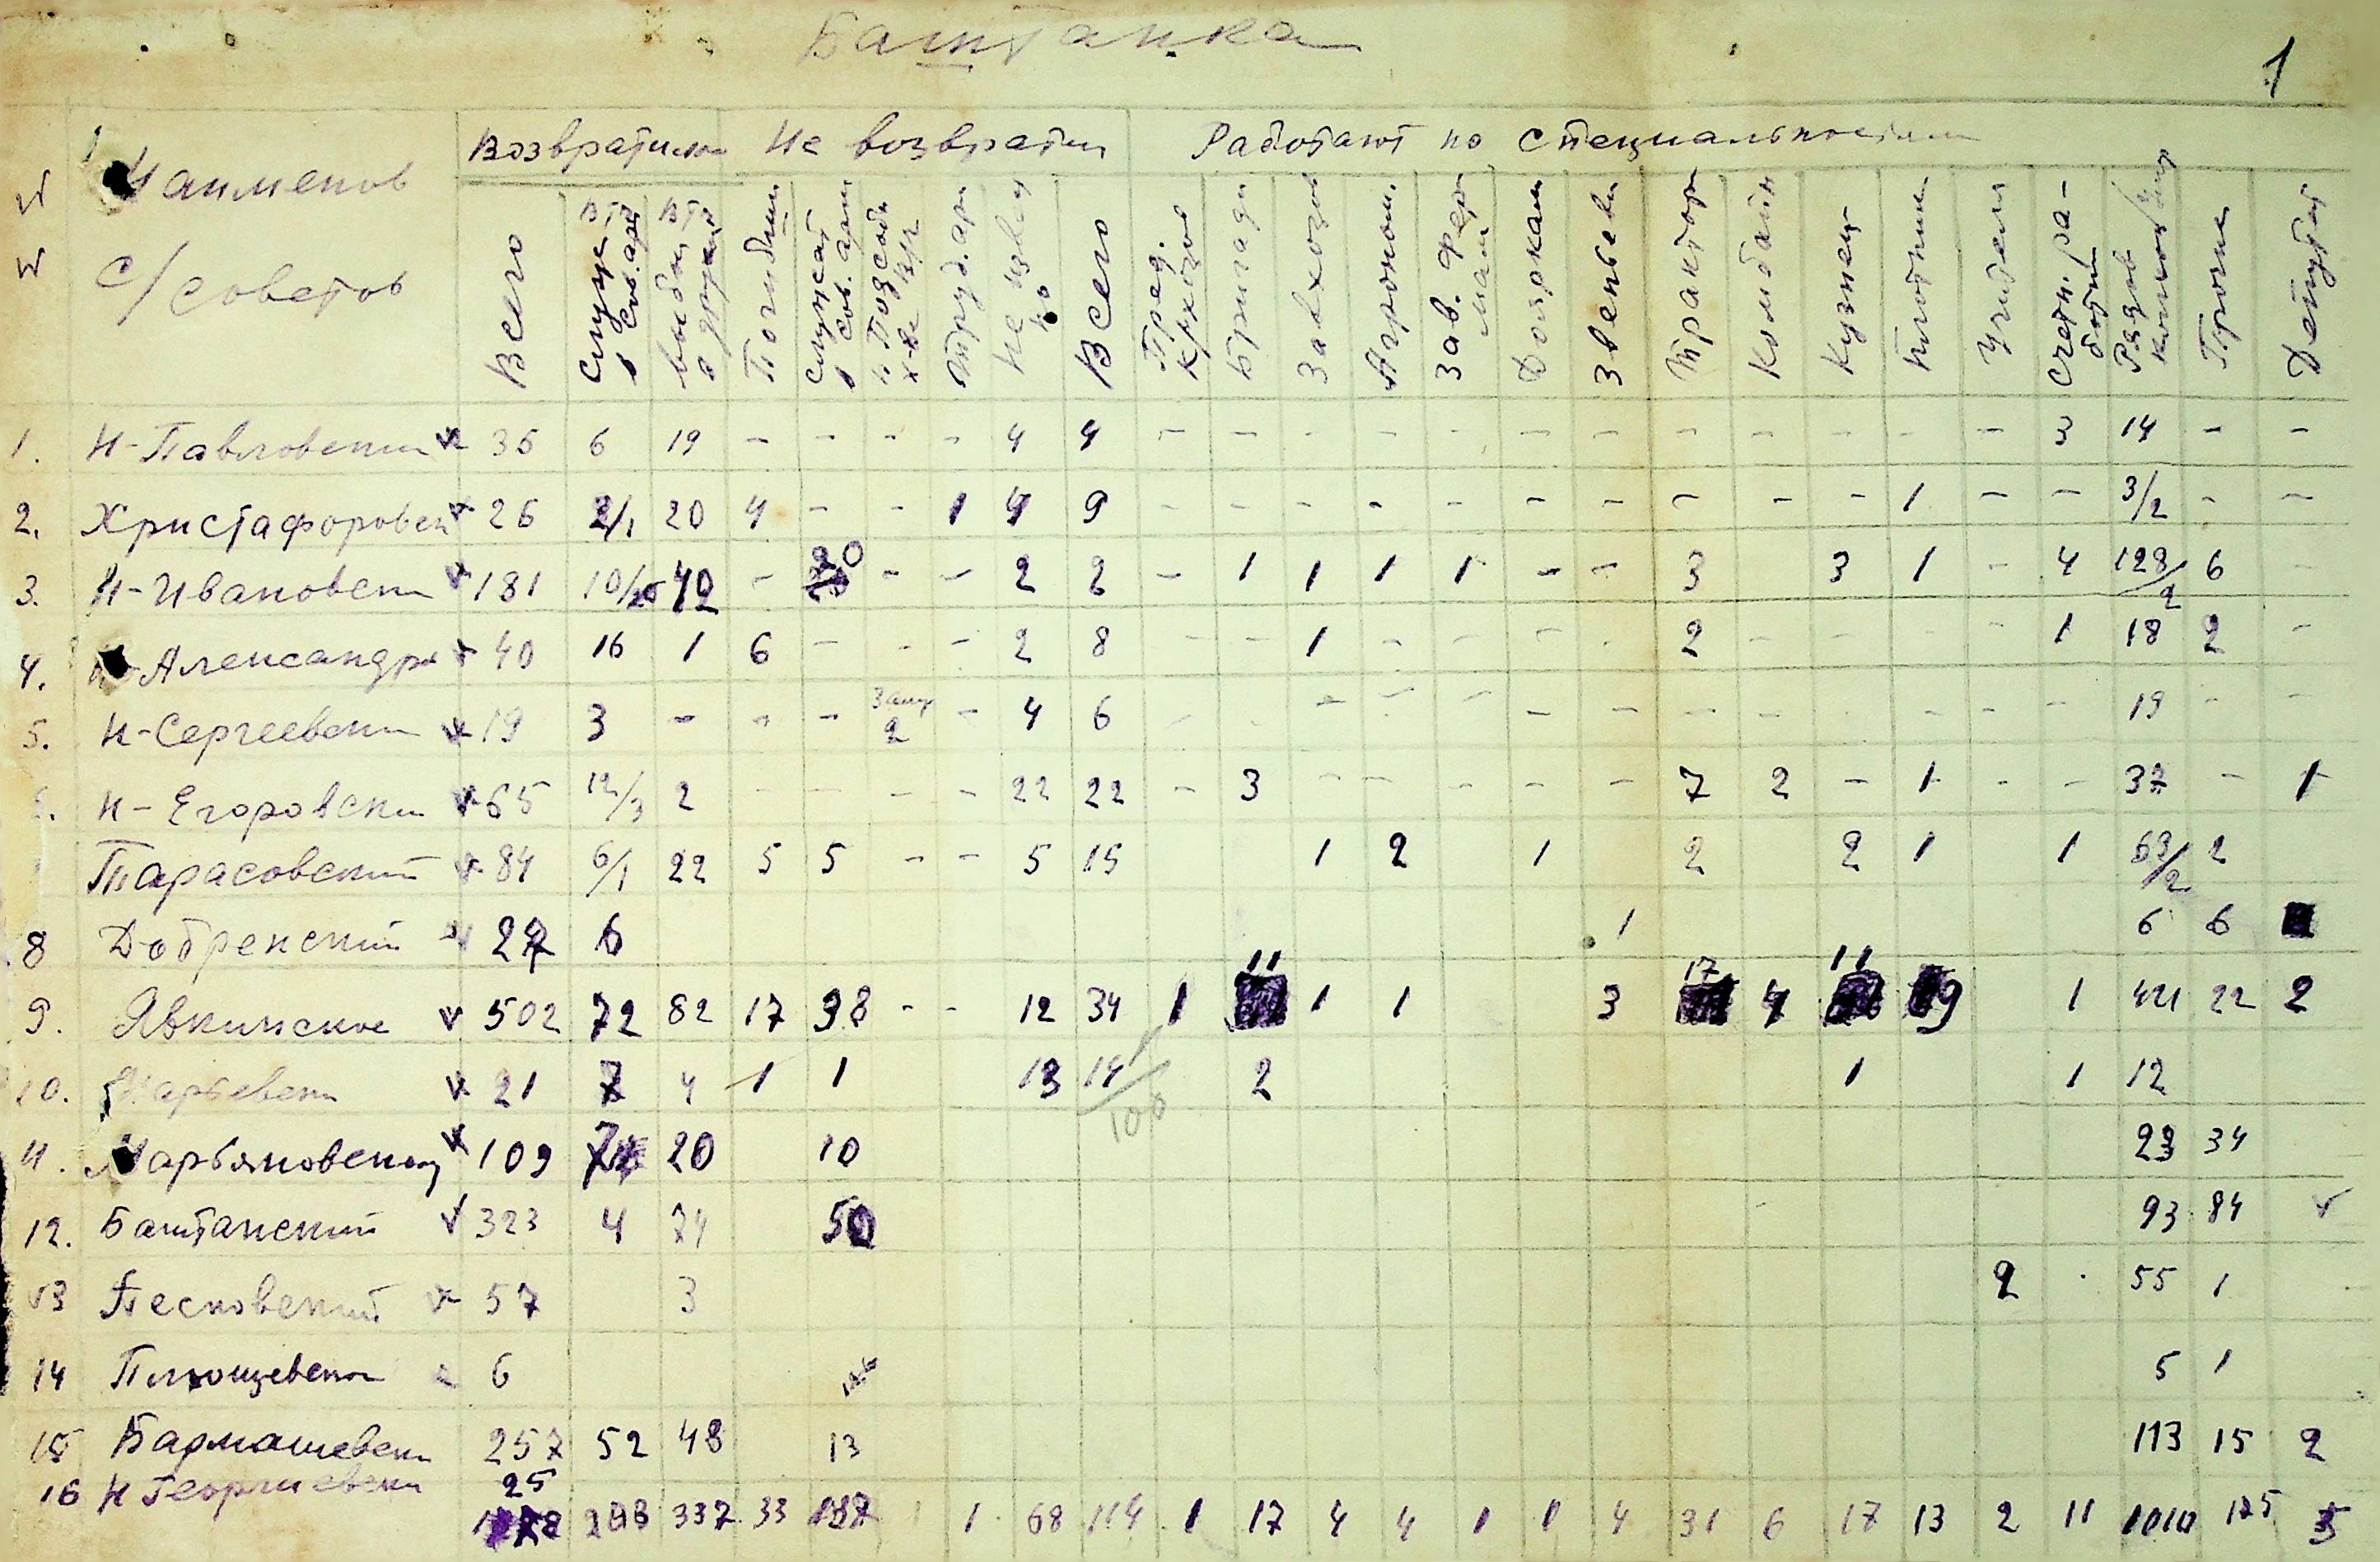 Баштанка
1
Возвратились Не возврати Работают по специальностям
№ № Наименов с/советов
Всего
Служ в Сов. арм
Погибши
служат в сов. арм
Труд. арм
Неизвестно
Всего
Пред. к
Бригади
Завхозы
Агроном.
Зав. Ферм
Доярками
Звеньевы
Трактор
Комбайн
Кузнец
Плотник
Учителя
Счетн. работн
Рядов
Прочие
Депутат
1. Н-Павловски 35 6 19 - - - - 4 4 - - - - - - - - - - - - 3 14 - -
2. Христафоровск 26 2/1 20 4 - - 1 4 9 - - - - - - - - - - 1 - - 3/2 - -
3. Н-Ивановск 181 10/20 42 - 20 - - 2 2 - 1 1 1 1 - - 3 3 1 - 4 128/2 6 -
4. Александро 40 16 1 6 - - - 2 8 - - 1 - - - - 2 - - - - 1 18 2 -
5. Н-Сергеевски 19 3 - - - 2 - 4 6 - - - - - - - - - - - - - 19 - -
Н-Егоровски 65 12/3 2 - - - - 22 22 - 3 - - - - - 7 2 - 1 - - 37 - 1
Тарасовский 84 6/1 22 5 5 - - 5 15 1 2 1 2 2 1 1 63/2 2
8 Добренский 27 6 1 6 6
9. Явкинское 502 72 82 17 38 - - 12 34 1 11 1 1 3 17 4 11 9 1 421 22 2
10. Марьевск 21 7 4 1 1 13 14 2 1 1 12
100
11. Марьяновский 109 20 10 23 34
12. Баштанский 323 4 74 50 93 84
13 Песковский 57 3 2 55 1
14 Плющевска 6 5 1
15 Бармашевск 257 52 48 13 113 15 2
16 Н Георгиевски 25
337 33 1 68 114 1 17 4 4 1 1 4 31 6 17 13 2 11 1010 175 5